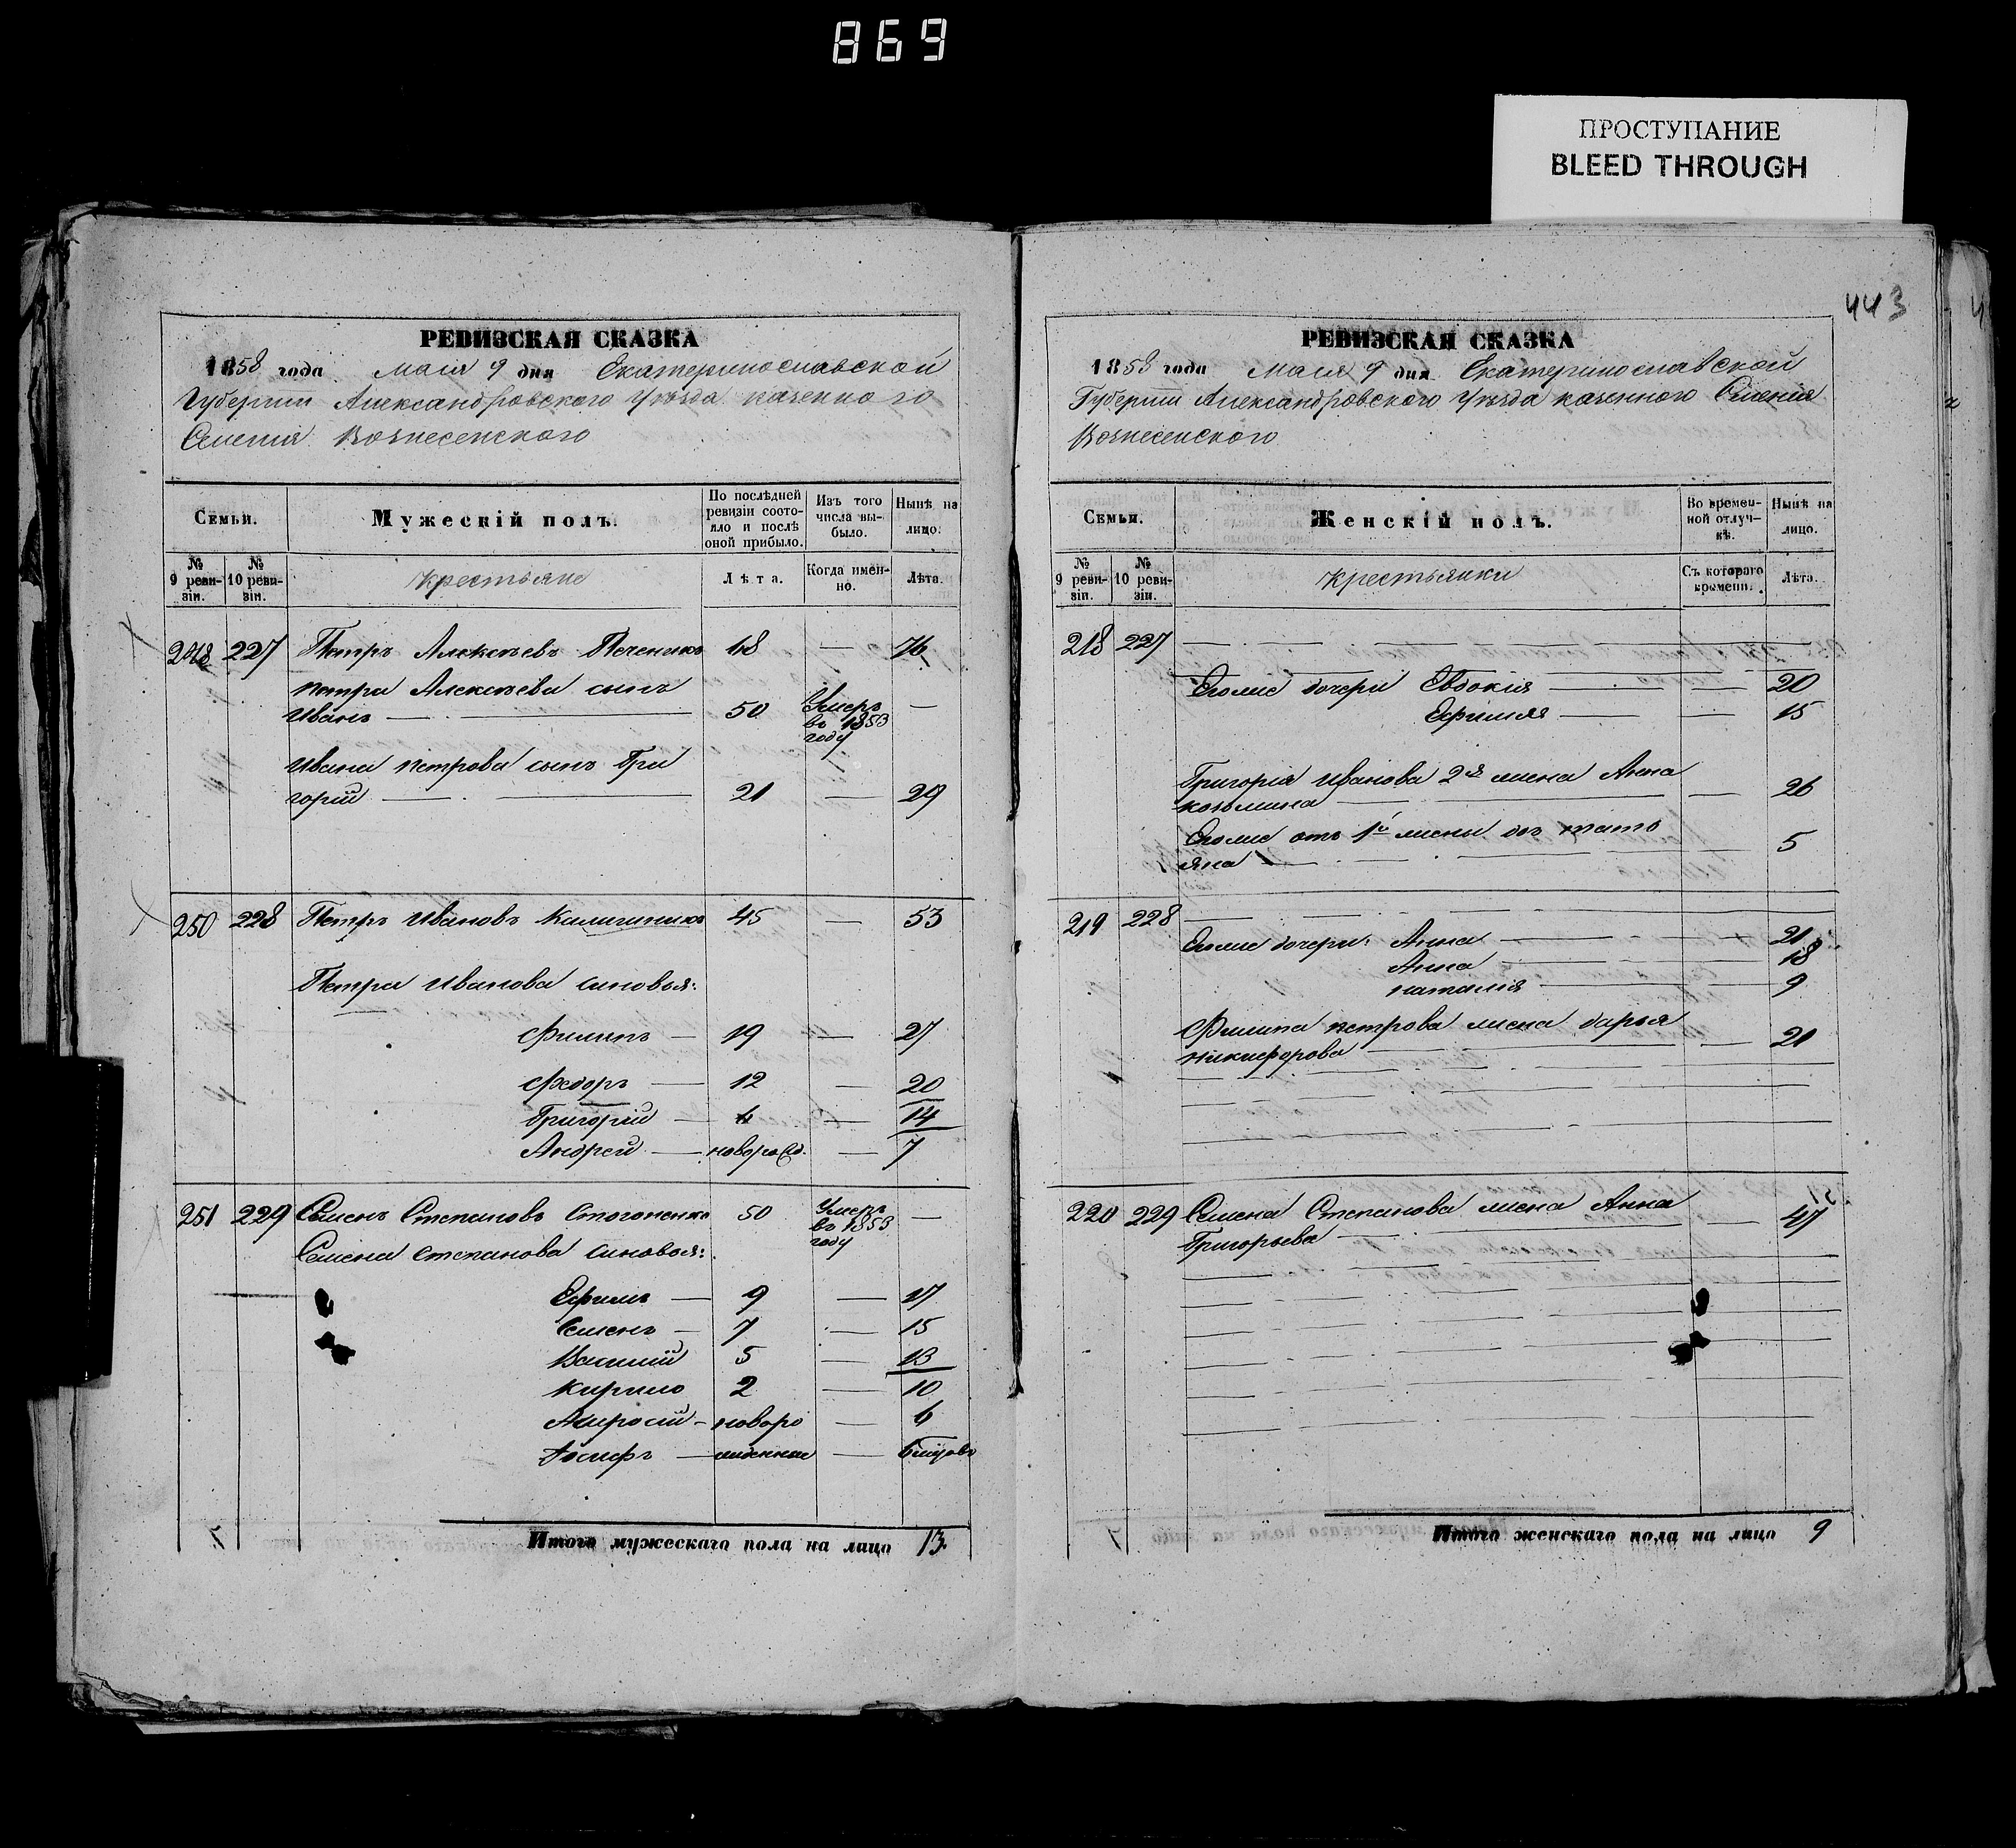 869
ПРОСТУПАНИЕ
BLEED THROUGH
РЕВИЗСКАЯ СКАЗКА
1858 года Маия 9 дня Екатеринославской
Губернии Александровского Уѣзда казенного
Селения Вознесенского
Семьи.
Мужескій полъ.
По послѣдней ревизіи состояло и послѣ оной прибыло.
Изъ того числа выбыло.
Нынѣ на лицо.
№ 9 ревизіи.
№ 10 ревизіи.
Крестьяне
Лѣта.
Когда именно.
Лѣта.
248 227 Петръ Алексѣевъ Печеникъ 68 — 76
Петра Алексѣева сынъ
Иванъ — 50 Умеръ въ 1853 году —
Ивана Петрова сынъ Гри
горій — 21 — 29
250 228 Петръ Ивановъ 45 — 53
Петра Иванова сыновья:
Филипъ — 19 — 27
Федоръ — 12 — 20
Григорій — 6 — 14
Андрей — новорожд. — 7
251 229 Семенъ Степановъ Стогоненко 50 Умеръ въ 1853 году —
Семена Степанова сыновья:
Ефимъ — 9 — 17
Семенъ — 7 — 15
Василій 5 — 13
Кирило 2 — 10
новоро — 6
Іосифъ — жденные —
Итого мужескаго пола на лицо 13
443
РЕВИЗСКАЯ СКАЗКА
1858 года Маия 9 дня Екатеринославской
Губернии Александровского Уѣзда казенного Селения
Вознесенского
Семьи.
Женскій полъ.
Во временной отлучкѣ.
Нынѣ на лицо.
№ 9 ревизіи.
№ 10 ревизіи.
Крестьянки
Съ котораго времени.
Лѣта.
218 227
Егоже дочери Евдокия — — 20
Ефимия — — 15
Григорія Иванова 2я жена Анна
Козьмина — — 26
Егоже отъ 1й жены доч Татья
яна — 5
219 228
Егоже дочери: Анна — — 21
Анна — 18
Наталия — 9
Филипа Петрова жена Дарья
Никифорова — — 21
220 229 Семена Степанова жена Анна
Григорьева — — 47
Итого женскаго пола на лицо 9